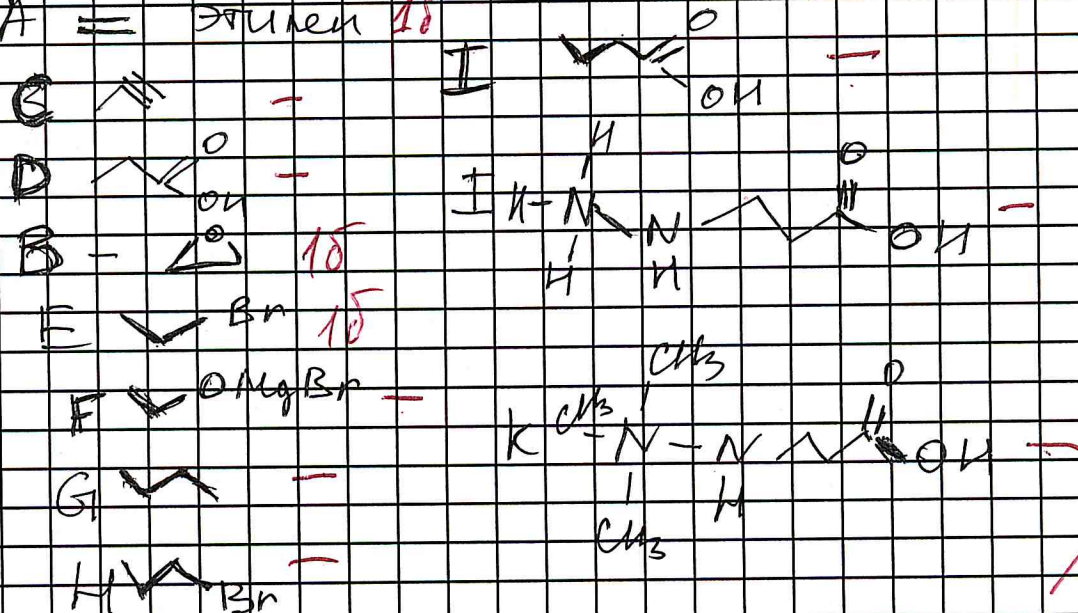 A этилен 1б
C –
D O OH –
B – O 1б
E Br 1б
F OMgBr –
G –
H Br –
I O OH –
I H – N H H N H O OH –
K CH3 – N CH3 CH3 – N H O OH –